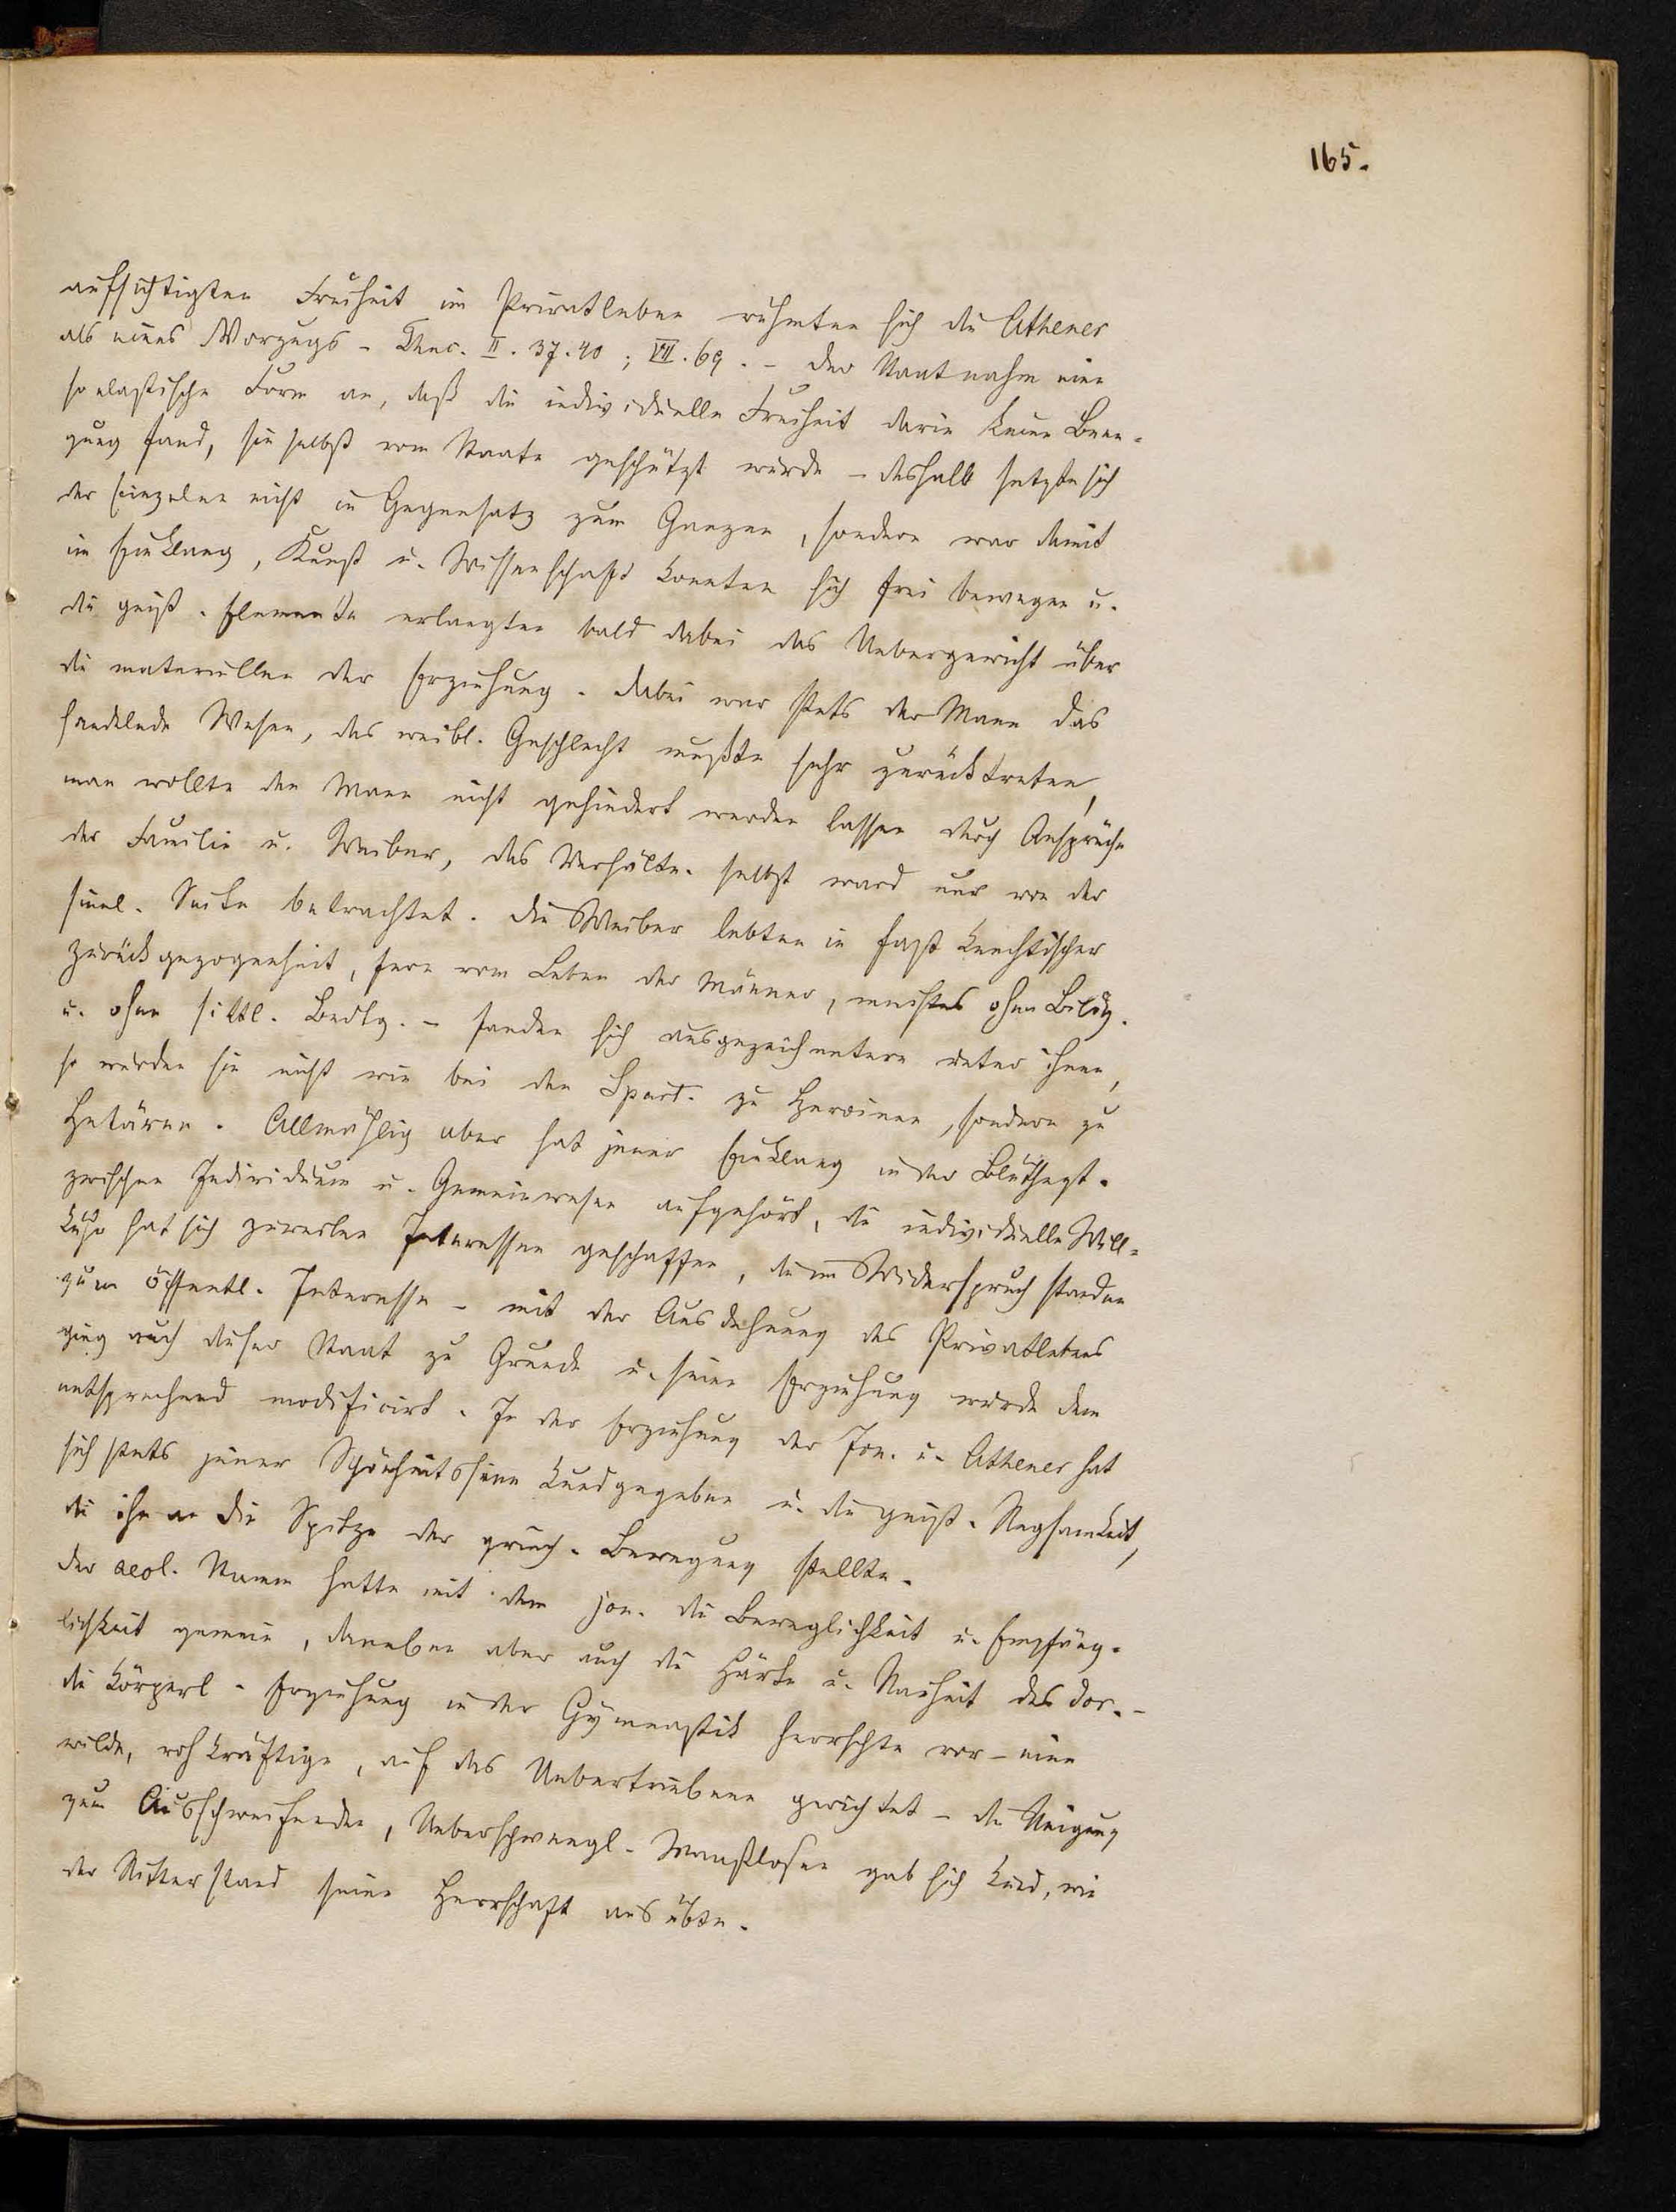 165.
aufsichtigten Freiheit im Privatleben rühmten sich die Athener
als eines Vorzugs - Thuc. II. 37. 40; VII. 69. - Der Staat nahm eine
so elastische Form an, daß die individuelle Freiheit darin keine Been-
gung fand, sie selbst vom Staate geschützt wurde - deshalb setzte sich
der Einzelne nicht in Gegensatz zum Ganzen, sondern war damit
im Einklang, Kunst u. Wissenschaft konnten sich frei bewegen u.
die geist. Elemente erlangten bald dabei das Uebergewicht über
die materiellen der Erziehung. Dabei war stets der Mann das
handelnde Wesen, das weibl. Geschlecht mußte sehr zurücktreten,
man wollte den Mann nicht gehindert werden lassen durch Ansprüche
der Familie u. Weiber, das Verhältn. selbst ward nur von der
sinnl. Seite betrachtet. Die Weiber lebten in fast knechtischer
Zurückgezogenheit, fern vom Leben der Männer, meistens ohne Bildg.
u. ohne sittl. Bedtg. - fanden sich ausgezeichnetere unter ihnen,
so wurden sie nicht wie bei den Spart. zu Heroinen, sondern zu
Hetären. Allmählig aber hat jener Einklang in der Blüthezt.
zwischen Individuum u. Gemeinwesen aufgehört, die individuelle Will-
kühr hat sich zuweilen Interessen geschaffen, die im Widerspruch standen
zum öffentl. Interesse - mit der Ausdehnung des Privatlebens
ging auch dieser Staat zu Grunde u. seine Erziehung wurde dem
entsprechend modificirt. In der Erziehung der Jon. u. Athener hat
sich stets jener Schönheitssinn kundgegeben u. die geist. Regsamkeit,
die ihn an die Spitze der griech. Bewegung stellte.
Der aeol. Stamm hatte mit dem jon. die Beweglichkeit u. Empfäng-
lichkeit gemein, daneben aber auch die Härte u. Rauheit des dor. -
die körperl. Erziehung in der Gymnastik herrschte vor - eine
wilde, rohkräftige, auf das Uebertriebene gerichtet - die Neigung
zum Ausschweifenden, Ueberschwengl. Maaßlosen gab sich kund, wie
der Ritterstand seine Herrschaft ausübte.